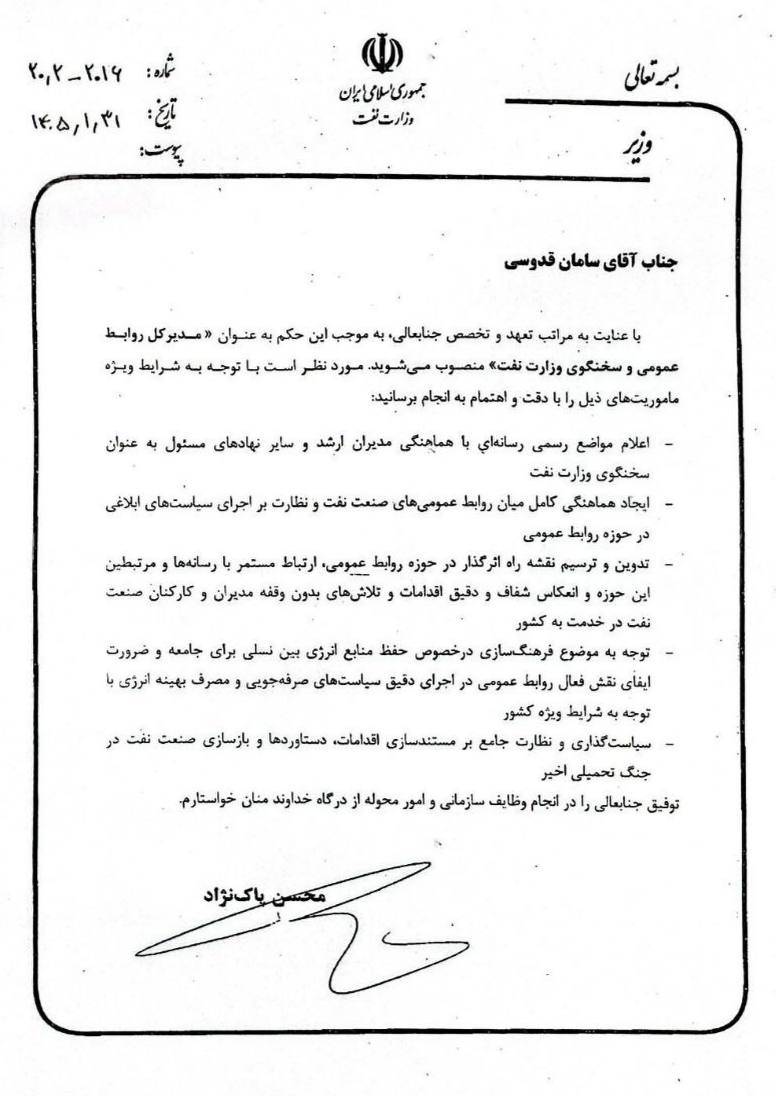 بسمه تعالی
جمهوری اسلامی ایران
وزارت نفت
وزیر
شماره: ۲۰۱۶-۲۰٫۲
تاریخ: ۱۴۰۵٫۱٫۳۱
پیوست:
جناب آقای سامان قدوسی
با عنایت به مراتب تعهد و تخصص جنابعالی، به موجب این حکم به عنوان «مدیرکل روابط
عمومی و سخنگوی وزارت نفت» منصوب می‌شوید. مورد نظر است با توجه به شرایط ویژه
ماموریت‌های ذیل را با دقت و اهتمام به انجام برسانید:
- اعلام مواضع رسمی رسانه‌ای با هماهنگی مدیران ارشد و سایر نهادهای مسئول به عنوان
سخنگوی وزارت نفت
- ایجاد هماهنگی کامل میان روابط عمومی‌های صنعت نفت و نظارت بر اجرای سیاست‌های ابلاغی
در حوزه روابط عمومی
- تدوین و ترسیم نقشه راه اثرگذار در حوزه روابط عمومی، ارتباط مستمر با رسانه‌ها و مرتبطین
این حوزه و انعکاس شفاف و دقیق اقدامات و تلاش‌های بدون وقفه مدیران و کارکنان صنعت
نفت در خدمت به کشور
- توجه به موضوع فرهنگ‌سازی درخصوص حفظ منابع انرژی بین نسلی برای جامعه و ضرورت
ایفای نقش فعال روابط عمومی در اجرای دقیق سیاست‌های صرفه‌جویی و مصرف بهینه انرژی با
توجه به شرایط ویژه کشور
- سیاست‌گذاری و نظارت جامع بر مستندسازی اقدامات، دستاوردها و بازسازی صنعت نفت در
جنگ تحمیلی اخیر
توفیق جنابعالی را در انجام وظایف سازمانی و امور محوله از درگاه خداوند منان خواستارم.
محسن پاک‌نژاد